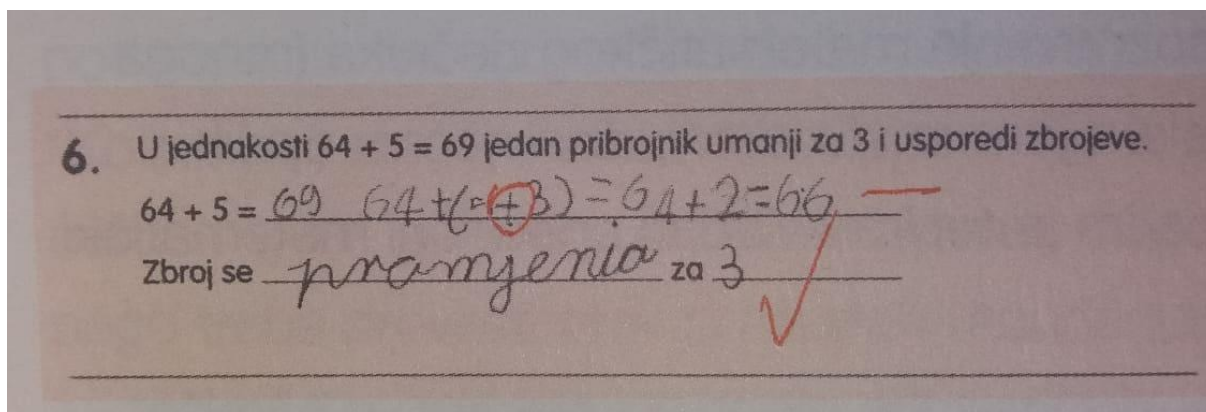 6. U jednakosti 64 + 5 = 69 jedan pribrojnik umanji za 3 i usporedi zbrojeve.
64 + 5 = 69 64+( +3)=64+2=66
Zbroj se pramjenia za 3